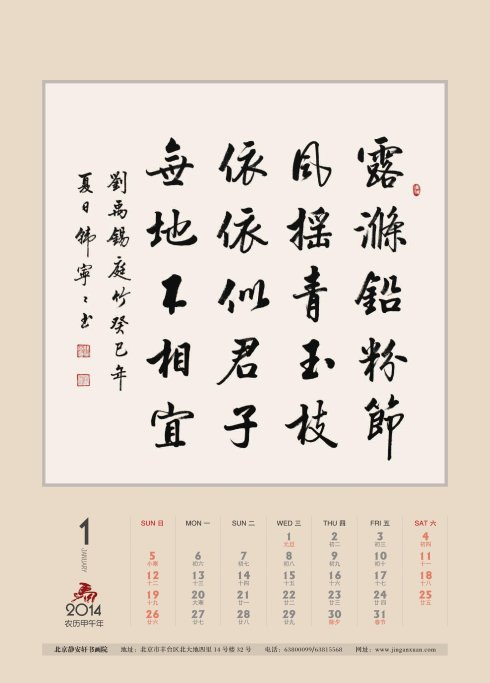 露滌鉛粉節
風搖青玉枝
依依似君子
無地不相宜
劉禹錫庭竹癸巳年
夏日韩寧〻书
1
JANUARY
2014
农历甲午年
SUN 日 MON 一 SUN 二 WED 三 THU 四 FRI 五 SAT 六
1 2 3 4
元旦 初二 初三 初四
5 6 7 8 9 10 11
小寒 初六 初七 初八 初九 初十 十一
12 13 14 15 16 17 18
十二 十三 十四 十五 十六 十七 十八
19 20 21 22 23 24 25
十九 大寒 廿一 廿二 廿三 廿四 廿五
26 27 28 29 30 31
廿六 廿七 廿八 廿九 除夕 春节
北京静安轩书画院 地址：北京市丰台区北大地四里14号楼32号 电话：63800099/63815568 网址：www.jinganxuan.com